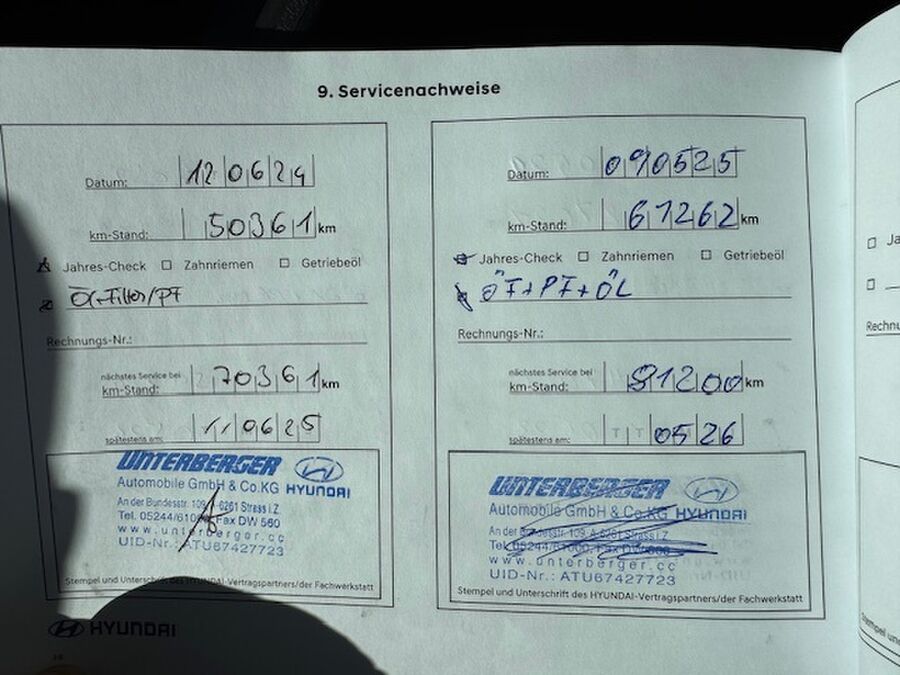 9. Servicenachweise
Datum: 120624
km-Stand: 50361 km
Jahres-Check Zahnriemen Getriebeöl
Öl+Filter/PF
Rechnungs-Nr.:
nächstes Service bei
km-Stand: 70361 km
spätestens am: 110625
UNTERBERGER
Automobile GmbH & Co.KG HYUNDAI
An der Bundesstr. 109, A-6261 Strass i.Z.
Tel. 05244/61000, Fax DW 560
www.unterberger.cc
UID-Nr.: ATU67427723
Stempel und Unterschrift des HYUNDAI-Vertragspartners/der Fachwerkstatt
HYUNDAI
Datum: 090525
km-Stand: 61262 km
Jahres-Check Zahnriemen Getriebeöl
ÖF+PF+ÖL
Rechnungs-Nr.:
nächstes Service bei
km-Stand: 81200 km
spätestens am: T T 0526
UNTERBERGER
Automobile GmbH & Co.KG HYUNDAI
An der Bundesstr. 109, A-6261 Strass i.Z.
Tel. 05244/61000, Fax DW 560
www.unterberger.cc
UID-Nr.: ATU67427723
Stempel und Unterschrift des HYUNDAI-Vertragspartners/der Fachwerkstatt